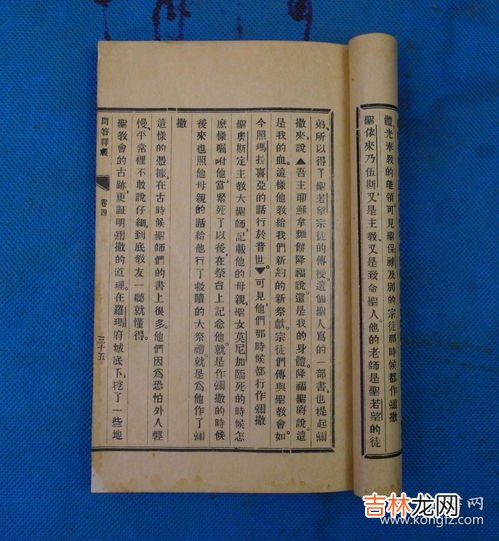 體光奉教的領可見聖保祿及別的宗徒那時候都作彌撒
聖依來乃伍斯又是主教又是致命聖人他的老師是聖若望的徒
弟所以得了聖若望宗徒的傳授這個聖人寫的一部書也提起彌
撒來說▲吾主耶穌拿麵餅降福說這是我的身體降福聖爵說這
是我的血這樣他教給我們新約的新祭獻宗徒們傳與聖教會如
今照瑪拉喜亞的話行於普世▼可見他們那時候都行作彌撒
聖奧斯定主教大聖師記載他的母親聖女莫尼加臨死的時候怎
麼樣囑咐他當緊死了以後在祭台上記念他作彌撒的時候
後來也照他母親的話給他行了救贖的大祭禮就是爲他作了彌
撒
這樣的憑據在古時候聖師們的書上很多他們因爲恐怕外人輕
慢平常裡不敢說仔細到底教友一聽就懂得
聖教會的古跡更証明彌撒的道理在羅瑪府城底下挖了一些地
問答釋義 卷四 三十五
吉林龙网
网
www.kongfz.com